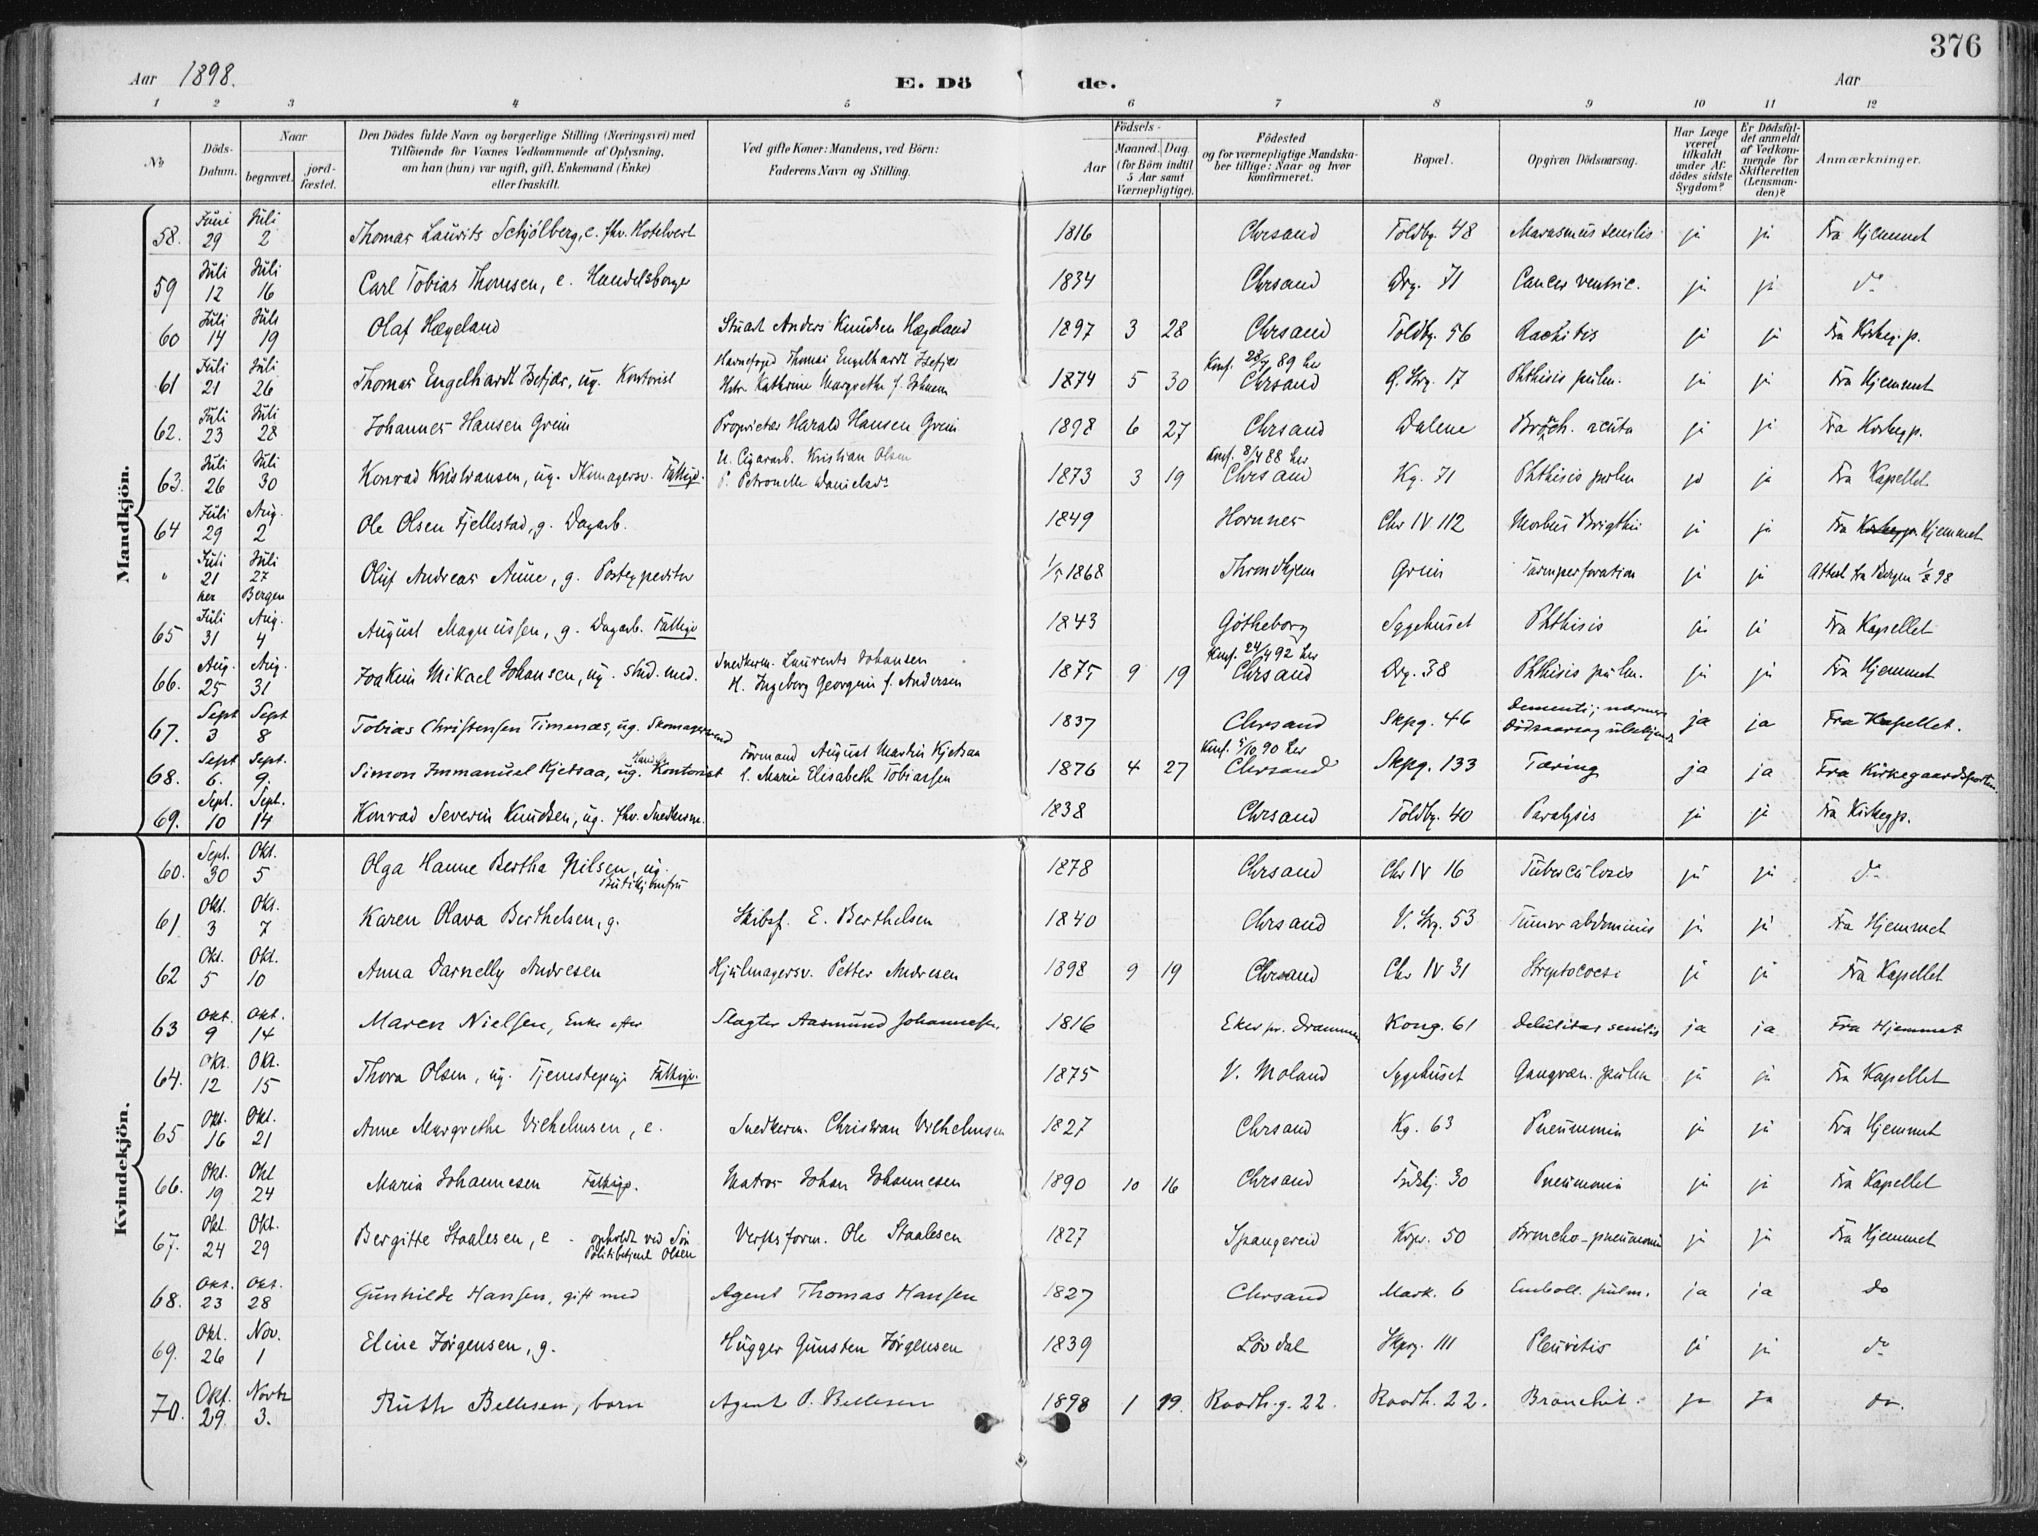 376
Aar 1898. E. Dö de. Aar
1 2 3 4 5 6 7 8 9 10 11 12
No
Döds-Datum.
Naar begravet. jord-fæstet.
Den Dödes fulde Navn og borgerlige Stilling (Næringsvei) med Tilföiende for Voxnes Vedkommende af Oplysning, om han (hun) var ugift, gift, Enkemand (Enke) eller fraskilt.
Ved gifte Koner: Mandens, ved Börn: Faderens Navn og Stilling.
Födsels- Aar Maaned. Dag (for Börn indtil 5 Aar samt Værnepligtige).
Födested og for værnepligtige Mandskaber tillige: Naar og hvor konfirmeret.
Bopæl.
Opgiven Dödsaarsag.
Har Læge været tilkaldt under Afdödes sidste Sygdom?
Er Dödsfaldet anmeldt af Vedkommende for Skifteretten (Lensmanden)?
Anmærkninger.
Mandkjön.
58. Juni 29 Juli 2 Thomas Laurits Schjölberg, e. fhv. Hotelvert 1816 Chrsand Toldbg. 48 Marasmus senilis ja ja Fra Hjemmet
59 Juli 12 Juli 16 Carl Tobias Thomsen, e. Handelsborger 1834 Chrsand Drg. 71 Cancer ventric. ja ja do
60 Juli 14 Juli 19 Olaf Hægeland Stuart Anders Knudsen Hægeland 1897 3 28 Chrsand Toldbg. 56 Rachitis ja ja Fra Kirkeg.p.
61 Juli 21 Juli 26 Thomas Engelhardt Isefjær, ug. Kontorist Havnefogd Thomas Engelhardt Isefjær Kathrine Margrethe 1874 5 30 Konf. 28/4 89 her Chrsand Ø. Strg. 17 Phthisis pulm. ja ja Fra Hjemmet
62. Juli 23 Juli 28 Johannes Hansen Grim Proprietær Harald Hansen Grim 1898 6 27 Chrsand Dalene Bronch. acuta ja ja Fra Kirkegp.
63. Juli 26 Juli 30 Konrad Kristiansen, ug. Skomagersv. Fattigv. U. Cigararb. Kristian Olsen P. Petronelle Danielsdr 1873 3 19 Konf. 8/4 88 her Chrsand Kg. 71 Phthisis pulm ja ja Fra Kapellet
64 Juli 29 Aug. 2 Ole Olsen Fjellestad, g. Dagarb. 1849 Hornnes Chr IV 112 Morbus Brigthii ja ja Fra Kirkegp. Hjemmet
" Juli 21 her Juli 27 Bergen Oluf Andreas Aune, g. Postexpeditør 1/5 1868 Throndhjem Grim Tarmperforation ja ja Attest fra Bergen 1/8 98
65 Juli 31 Aug. 4 August Magnussen, g. Dagarb. Fattigv 1843 Götheborg Sygehuset Phthisis ja ja Fra Kapellet
66. Aug. 25 Aug. 31 Joakim Mikael Johansen, ug. stud. med. Snedkerm. Laurents Johansen H. Ingeborg Georgine f. Andersen 1875 9 19 Konf. 24/4 92 her Chrsand Drg. 38 Phthisis pulm. ja ja Fra Hjemmet
67. Sept 3 Sept 8 Tobias Christensen Timenæs, ug. Skomagersvend 1837 Chrsand Skpg. 46 Dementi; nærmere Dödsaarsag ubekjendt ja ja Fra Kapellet.
68. Sept 6. Sept. 9. Simon Immanuel Kjetsaa, ug. Handels Kontorist Formand August Martin Kjetsaa & Marie Elisabeth Tobiassen 1876 4 27 Konf. 5/10 90 her Chrsand Skpg. 133 Tæring ja ja Fra Kirkegaardsporten.
69. Sept. 10 Sept. 14 Konrad Severin Knudsen, ug. fhv. Snedkerm. 1838 Chrsand Toldbg. 40 Paralysis ja ja Fra Kirkegp.
Kvindekjön.
60. Sept. 30 Okt. 5 Olga Hanne Bertha Nilsen, ug. Butikjomfru 1878 Chrsand Chr IV 16 Tuberculosis ja ja do
61 Okt. 3 Okt. 7 Karen Olava Berthelsen, g. Skibsf. E. Berthelsen 1840 Chrsand V. Strg. 53 Tumor abdominis ja ja Fra Hjemmet
62 Okt. 5 Okt. 10 Anna Darnelly Andresen Hjulmagersv. Petter Andresen 1898 9 19 Chrsand Chr IV 31 Streptococsi ja ja Fra Kapellet
63 Okt. 9 Okt. 14 Maren Nielsen, Enke efter Slagter Aasmund Johannesen. 1816 Eker pr. Drammen Kong. 61 Debilitas senilis ja ja Fra Hjemmet
64. Okt. 12 Okt. 15 Thora Olsen, ug. Tjenestepige Fattigv. 1875 V. Moland Sygehuset Gangræn. pulm ja ja Fra Kapellet
65 Okt. 16 Okt. 21 Anne Margrethe Vilhelmsen, e. Snedkerm. Christian Vilhelmsen 1827 Chrsand Kg. 63 Pneumonia ja ja Fra Hjemmet
66. Okt. 19 Okt 24 Maria Johannesen Fattigp. Matros Johan Johannesen 1890 10 16 Chrsand 30 Pneumonia ja ja Fra Kapellet
67. Okt. 24 Okt. 29 Bergitte Staalesen, e opholdt ved Sön Politibetjent Olsen Verftsform. Ole Staalesen 1827 Spangereid 50 Broncho-pneumonia ja ja Fra Hjemmet
68. Okt. 23 Okt. 28 Gunhilde Hansen, gift med Agent Thomas Hansen 1827 Chrsand Mark. 6 Emboll. pulm. ja ja do
69. Okt. 26 Nov. 1 Eline Jörgensen, g. Hugger Gunsten Jörgensen 1839 Lövdal Skpg. 111 Pleuritis ja ja do
70. Okt. 29. Novbr 3. Ruth Bellesen, barn Agent P. Bellesen 1898 1 19. Raadh.g. 22. Raadh. 22. Bronchit. ja ja do.